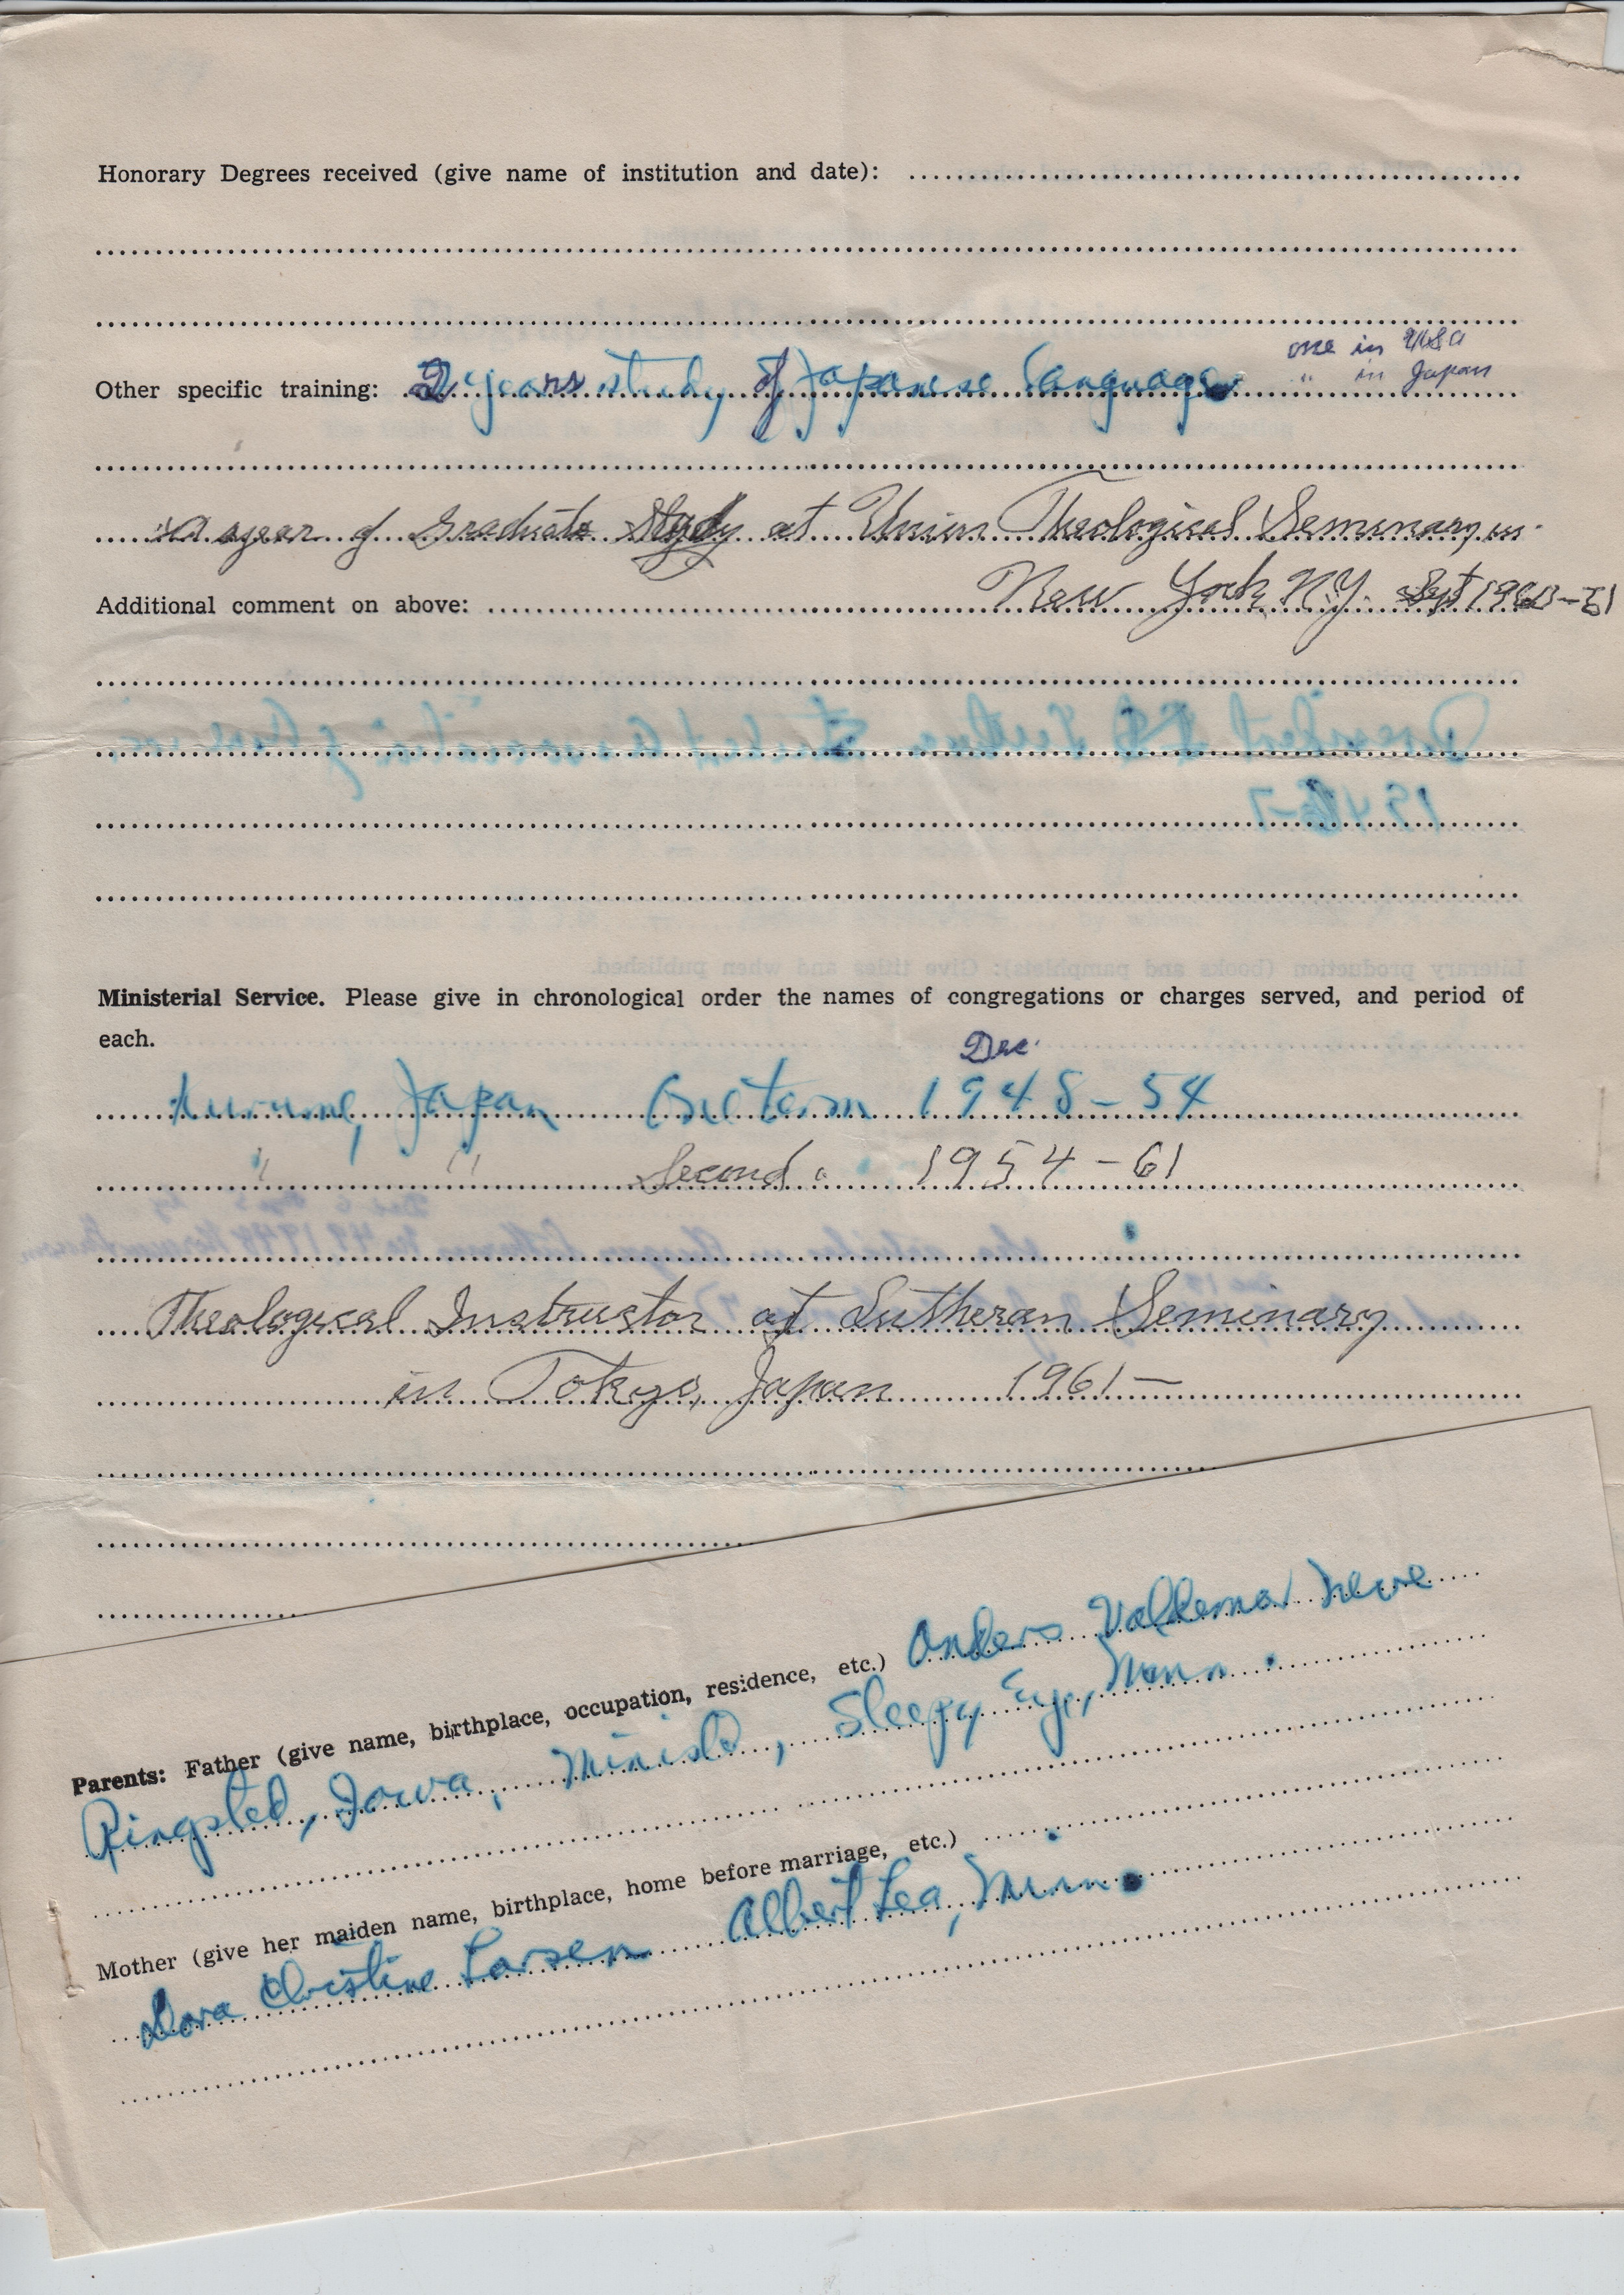 Honorary Degrees received (give name of institution and date):
one in USA
Other specific training: 2 years study of Japanese Language " in Japan
a year of Graduate Study at Union Theological Seminary in
Additional comment on above: New York, N.Y. Sept 1960-61
Ministerial Service. Please give in chronological order the names of congregations or charges served, and period of
each.
Dec.
Kurume, Japan One term 1948-54
" " Second " 1954-61
Theological Instructor at Lutheran Seminary
in Tokyo, Japan 1961-
Parents: Father (give name, birthplace, occupation, residence, etc.) Anders Valdemar Neve
Ringsted, Iowa, Minister, Sleepy Eye, Minn.
Mother (give her maiden name, birthplace, home before marriage, etc.)
Dora Christine Larsen Albert Lea, Minn.